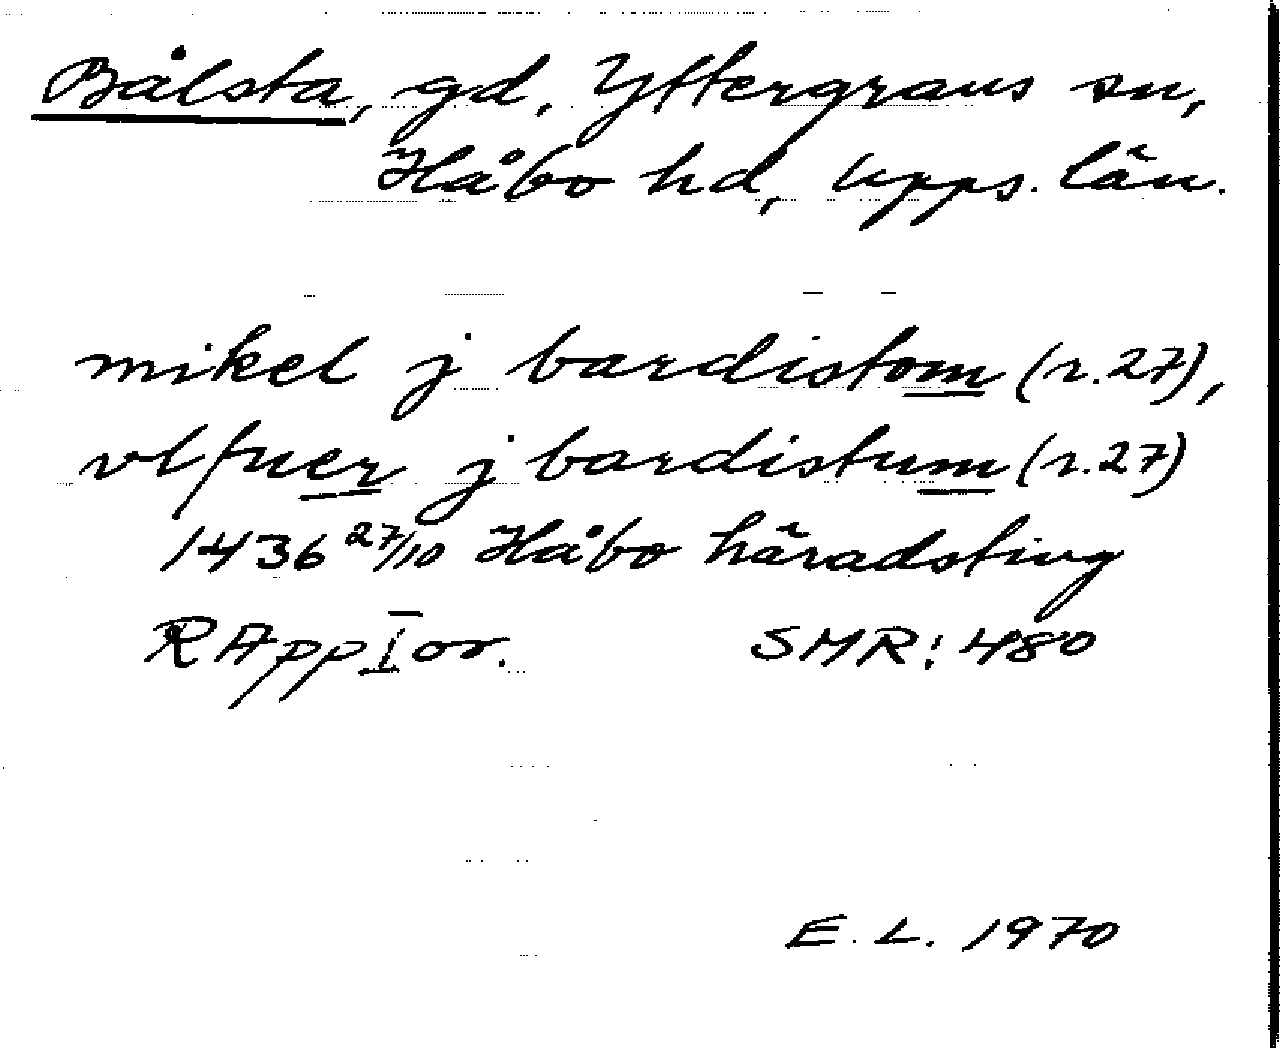 Bålsta, gd, Yttergrans sn,
Håbo hd, Upps. län.
mikel j bardistom (r.27),
vlfuer j bardistum (r.27)
1436 27/10 Håbo häradsting
RApp I or. SMR: 480
E. L. 1970